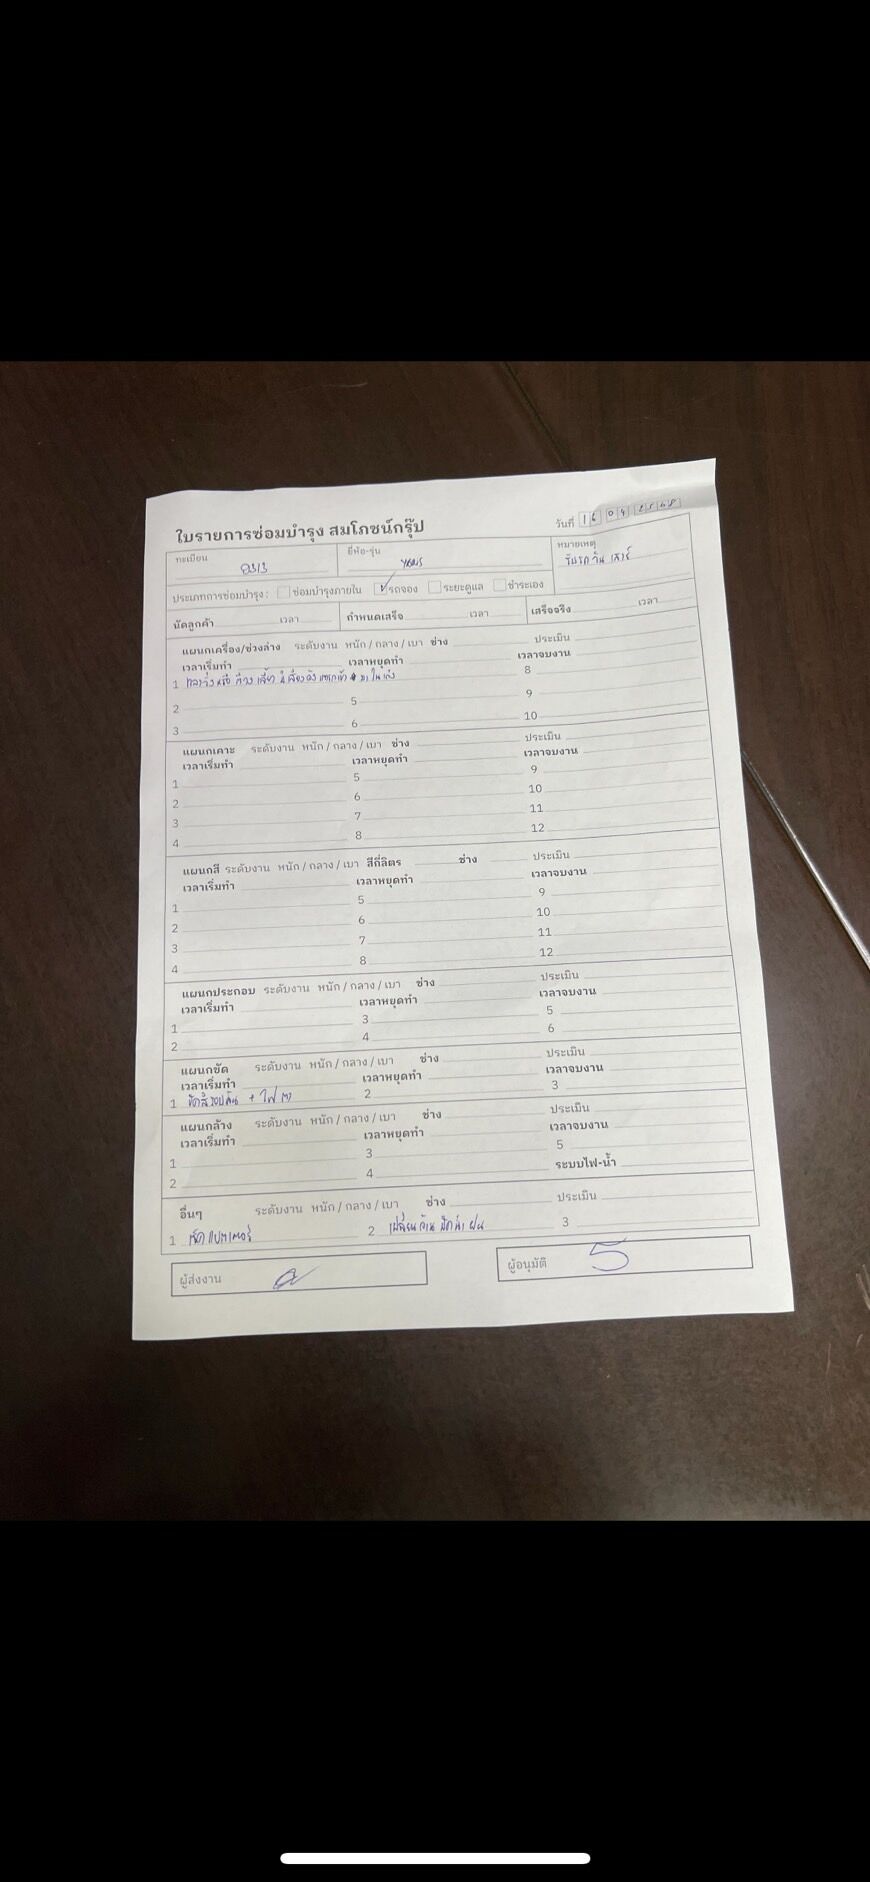 ใบรายการซ่อมบำรุง สมโภชน์กรุ๊ป
วันที่ 16 04 2568
ทะเบียน 8313 ยี่ห้อ-รุ่น YARIS หมายเหตุ
รับรถวันเสาร์
ประเภทการซ่อมบำรุง : ซ่อมบำรุงภายใน ✓ รถจอง ระยะดูแล ชำระเอง
นัดลูกค้า เวลา กำหนดเสร็จ เวลา เสร็จจริง เวลา
แผนกเครื่อง/ช่วงล่าง ระดับงาน หนัก / กลาง / เบา ช่าง ประเมิน
เวลาเริ่มทำ เวลาหยุดทำ เวลาจบงาน
1 8
2 5 9
3 6 10
แผนกเคาะ ระดับงาน หนัก / กลาง / เบา ช่าง ประเมิน
เวลาเริ่มทำ เวลาหยุดทำ เวลาจบงาน
1 5 9
2 6 10
3 7 11
4 8 12
แผนกสี ระดับงาน หนัก / กลาง / เบา สีกี่ลิตร ช่าง ประเมิน
เวลาเริ่มทำ เวลาหยุดทำ เวลาจบงาน
1 5 9
2 6 10
3 7 11
4 8 12
แผนกประกอบ ระดับงาน หนัก / กลาง / เบา ช่าง ประเมิน
เวลาเริ่มทำ เวลาหยุดทำ เวลาจบงาน
1 3 5
2 4 6
แผนกขัด ระดับงาน หนัก / กลาง / เบา ช่าง ประเมิน
เวลาเริ่มทำ เวลาหยุดทำ เวลาจบงาน
1 ขัดสีรอบคัน + ไฟ 2 3
แผนกล้าง ระดับงาน หนัก / กลาง / เบา ช่าง ประเมิน
เวลาเริ่มทำ เวลาหยุดทำ เวลาจบงาน
1 3 5
2 4 ระบบไฟ-น้ำ
อื่นๆ ระดับงาน หนัก / กลาง / เบา ช่าง ประเมิน
1 เช็คแบตเตอรี่ 2 เปลี่ยนก้านปัดน้ำฝน 3
ผู้ส่งงาน ผู้อนุมัติ